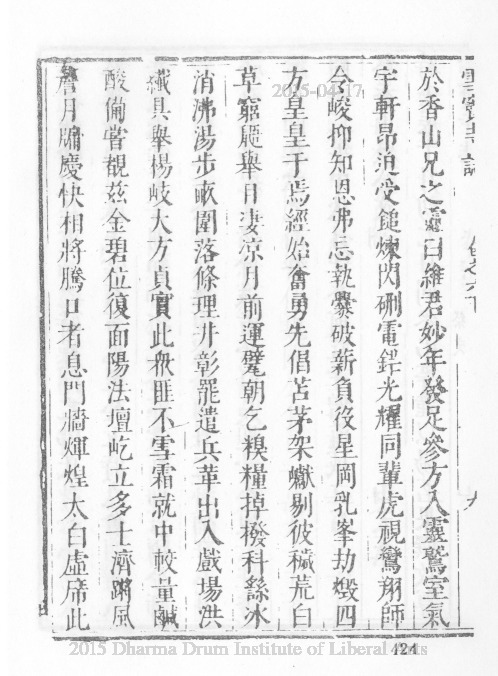 雪竇寺誌
卷之六下
九
於香山兄之靈曰維君妙年發足參方入靈鷲室氣
宇軒昂迫受鎚煉閃硎電鋅光耀同輩虎視鸞翔師
令峻抑知恩弗忘執爨破薪負役星岡乳峯劫燬四
方皇皇于焉經始奮勇先倡苫茅架巘剔彼穢荒白
草窮颸舉目凄涼月前運甓朝乞糗糧掉撥科繇冰
消沸湯步畝圍落條理井彰罷遣兵革出入戲場洪
纖具舉楊岐大方貞實此秋匪不雪霜就中較量鹹
酸備嘗覩茲金碧位復面陽法壇屹立多士濟蹡風
月牖慶快相將騰口者息門牆煇煌太白虛席此
2015-04-17
2015 Dharma Drum Institute of Liberal Arts
424